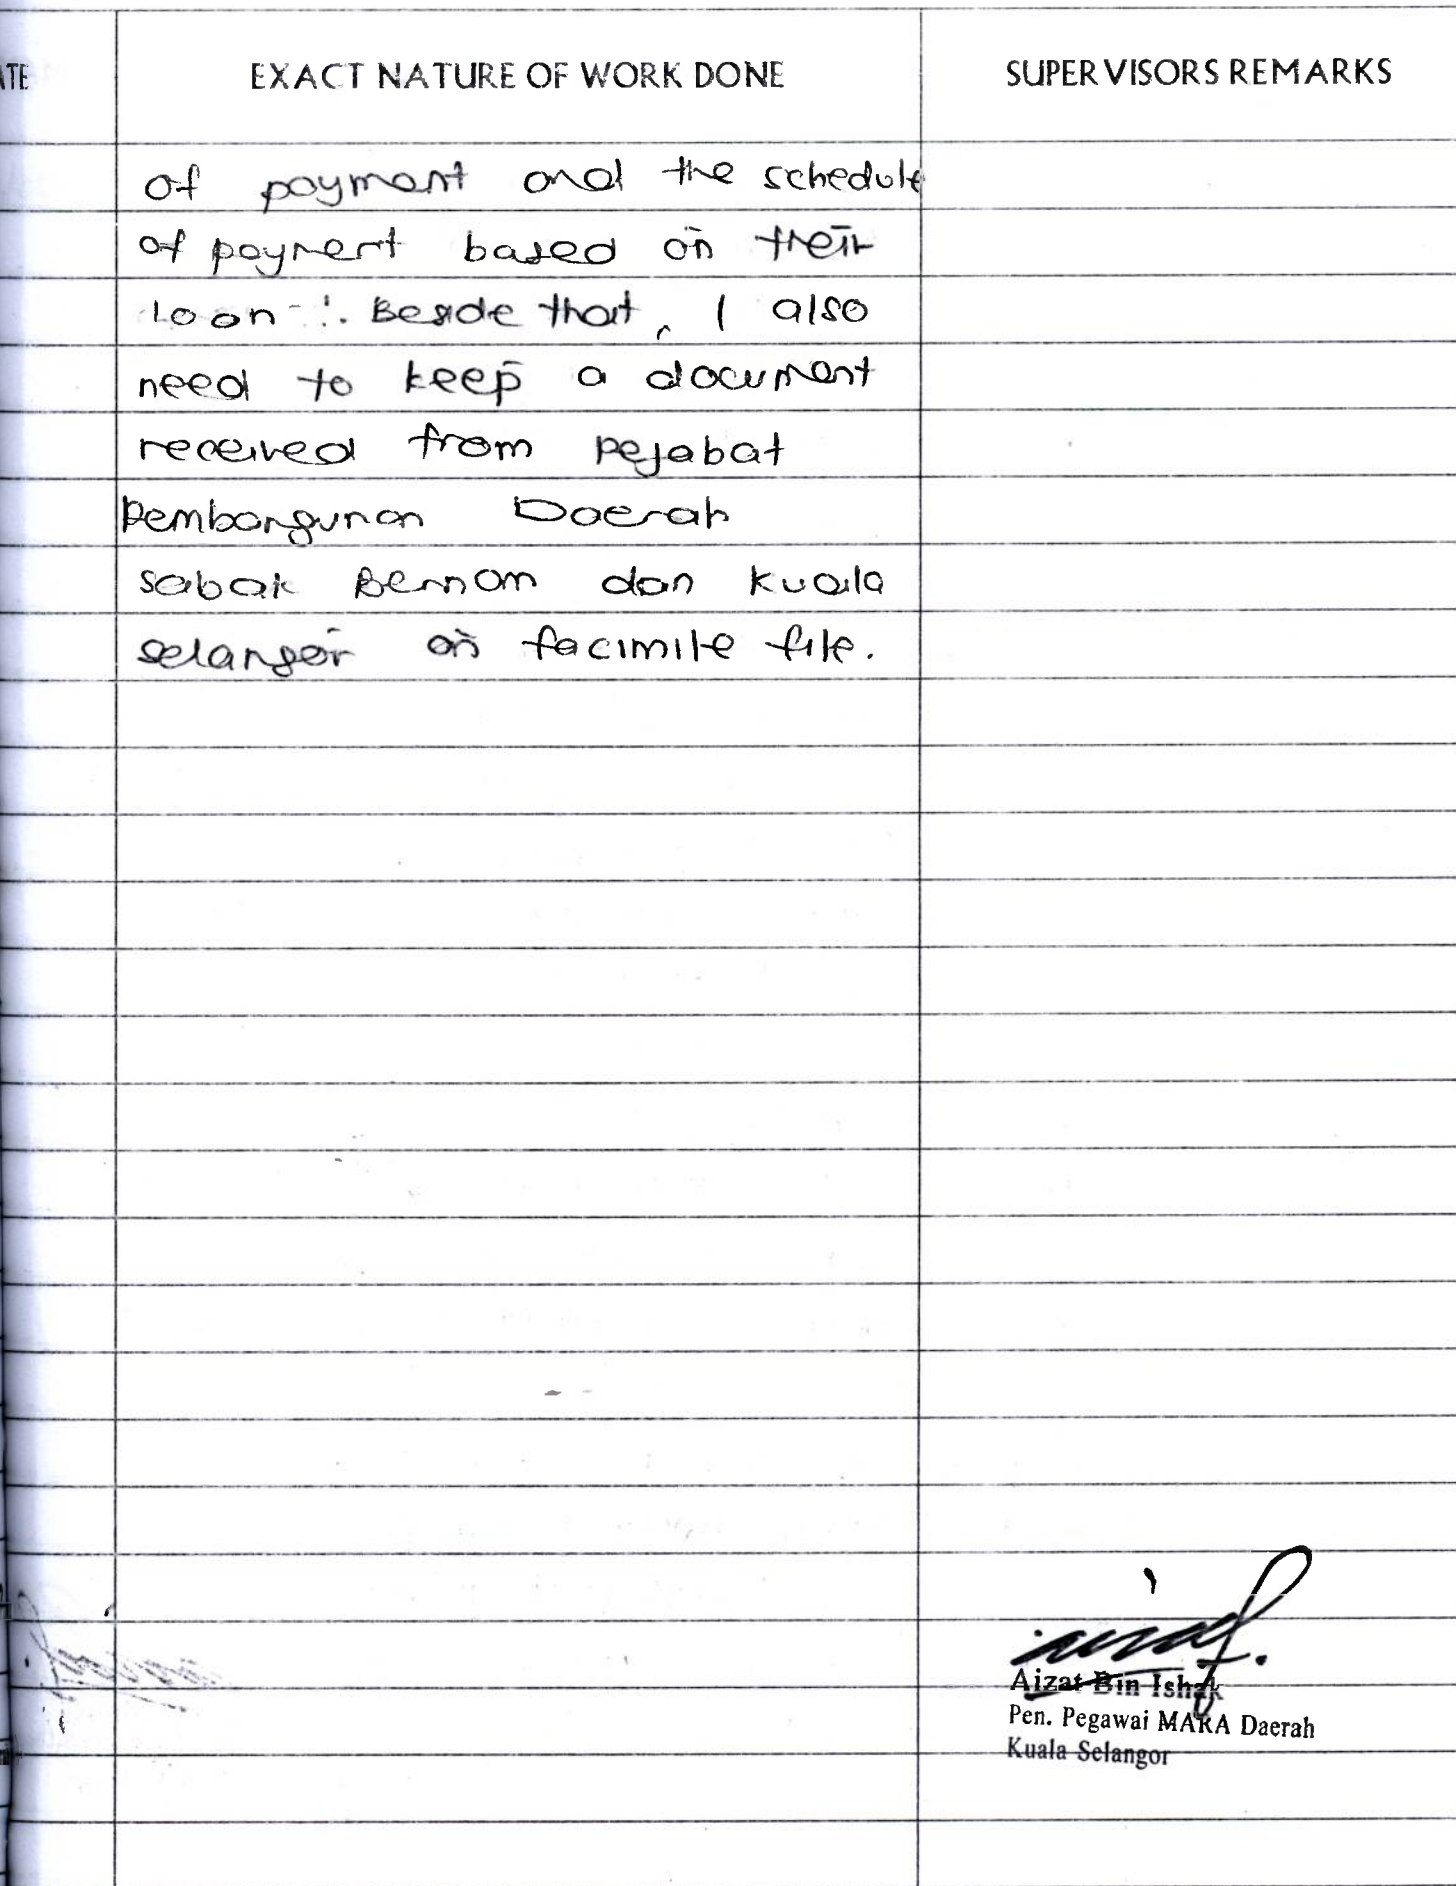 ATE EXACT NATURE OF WORK DONE SUPERVISORS REMARKS
of payment and the schedule
of payment based on their
loan. Beside that, I also
need to keep a document
received from Pejabat
Pembangunan Daerah
Sabak Bernam dan Kuala
Selangor on facimile file.
Aizat Bin Ishak
Pen. Pegawai MARA Daerah
Kuala Selangor